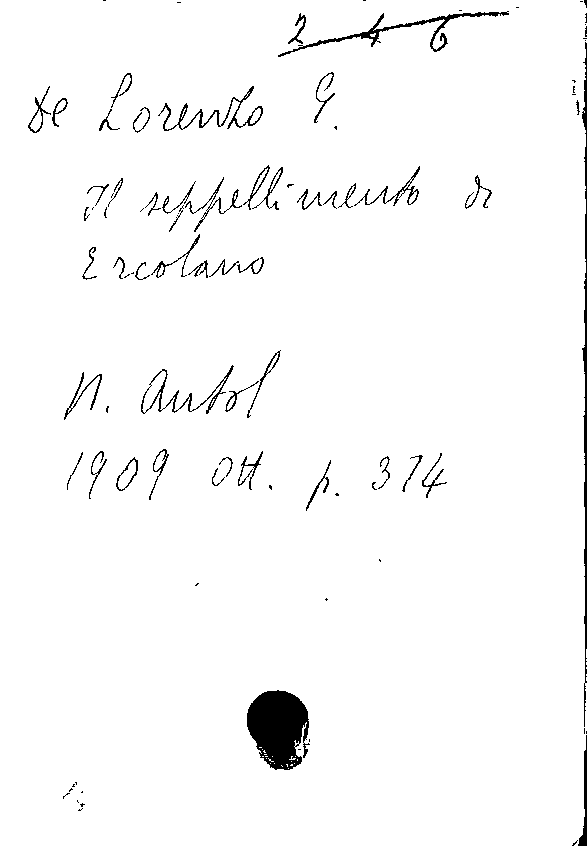 2 4 6
De Lorenzo G.
Il seppellimento di
Ercolano
N. Antol
1909 Ott. p. 374